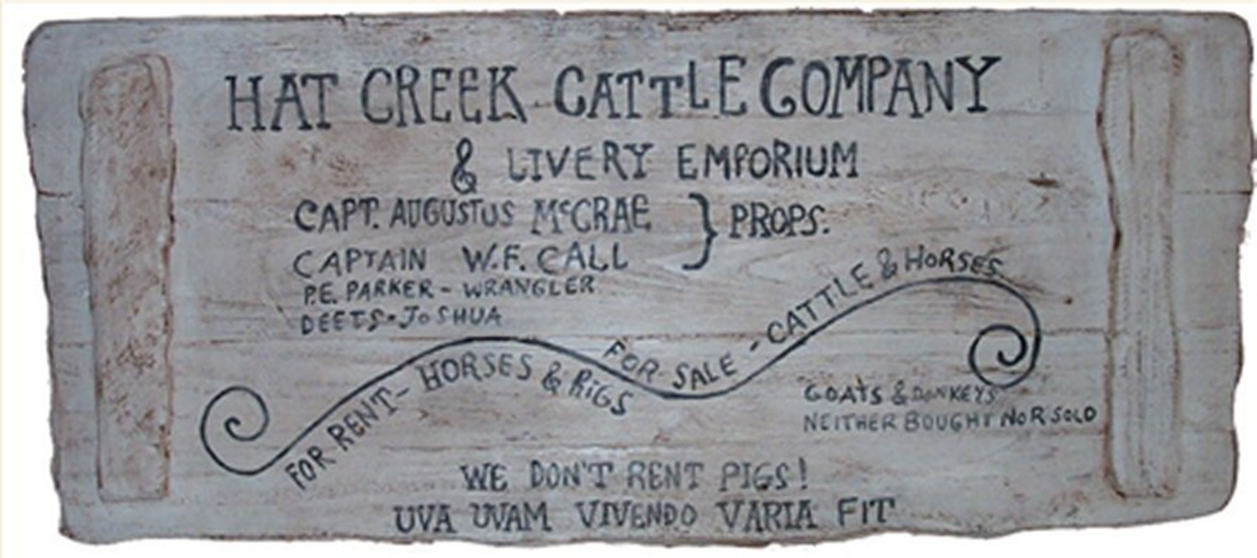 HAT CREEK CATTLE COMPANY
& LIVERY EMPORIUM
CAPT. AUGUSTUS McCRAE } PROPS.
CAPTAIN W.F. CALL
P.E. PARKER - WRANGLER
DEETS · JOSHUA
FOR RENT - HORSES & RIGS
FOR SALE - CATTLE & HORSES
GOATS & DONKEYS
NEITHER BOUGHT NOR SOLD
WE DON'T RENT PIGS!
UVA UVAM VIVENDO VARIA FIT